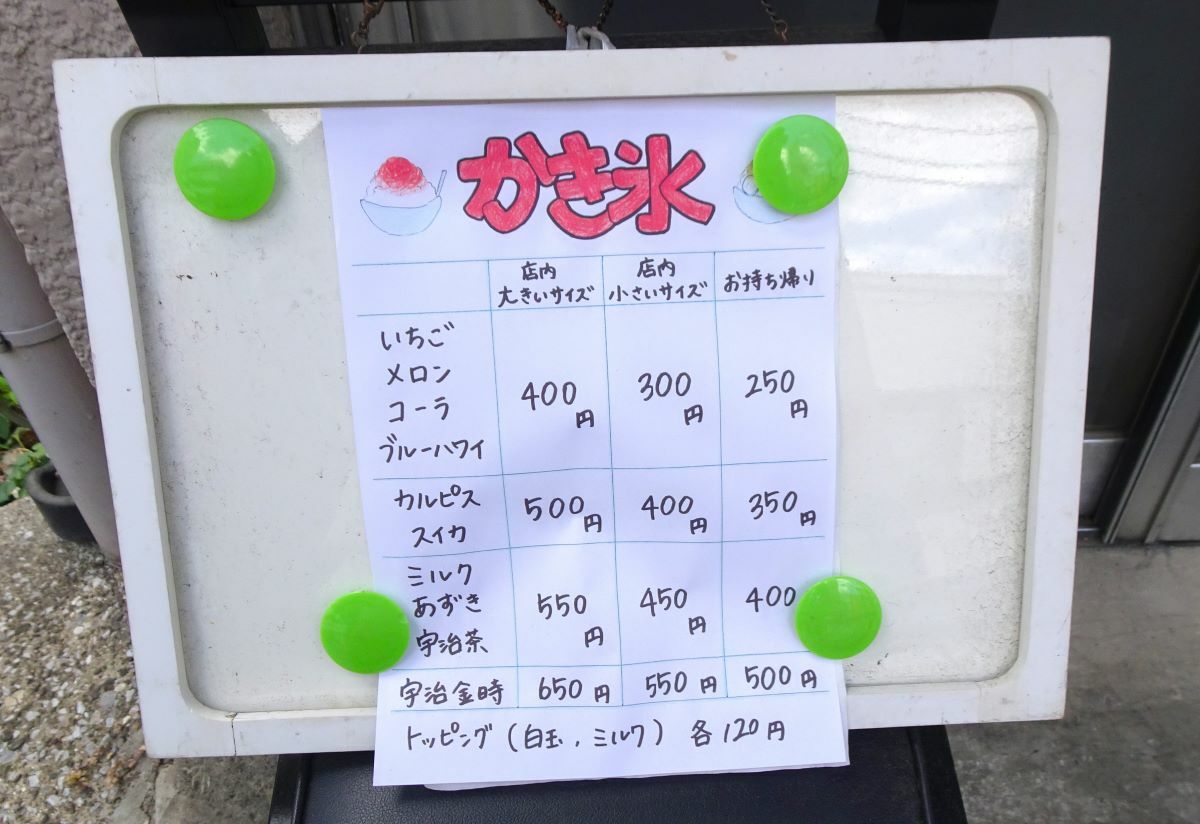 かき氷
店内 大きいサイズ 店内 小さいサイズ お持ち帰り
いちご
メロン
コーラ
ブルーハワイ
400円 300円 250円
カルピス
スイカ
500円 400円 350円
ミルク
あずき
宇治茶
550円 450円 400
宇治金時 650円 550円 500円
トッピング(白玉、ミルク) 各120円